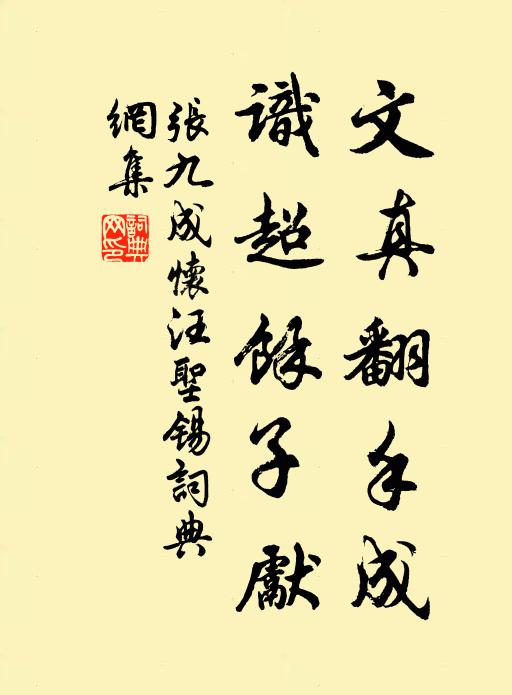 文真翻手成
識超餘子獻
張九成懷汪聖錫詞典
網集
詞典
網印